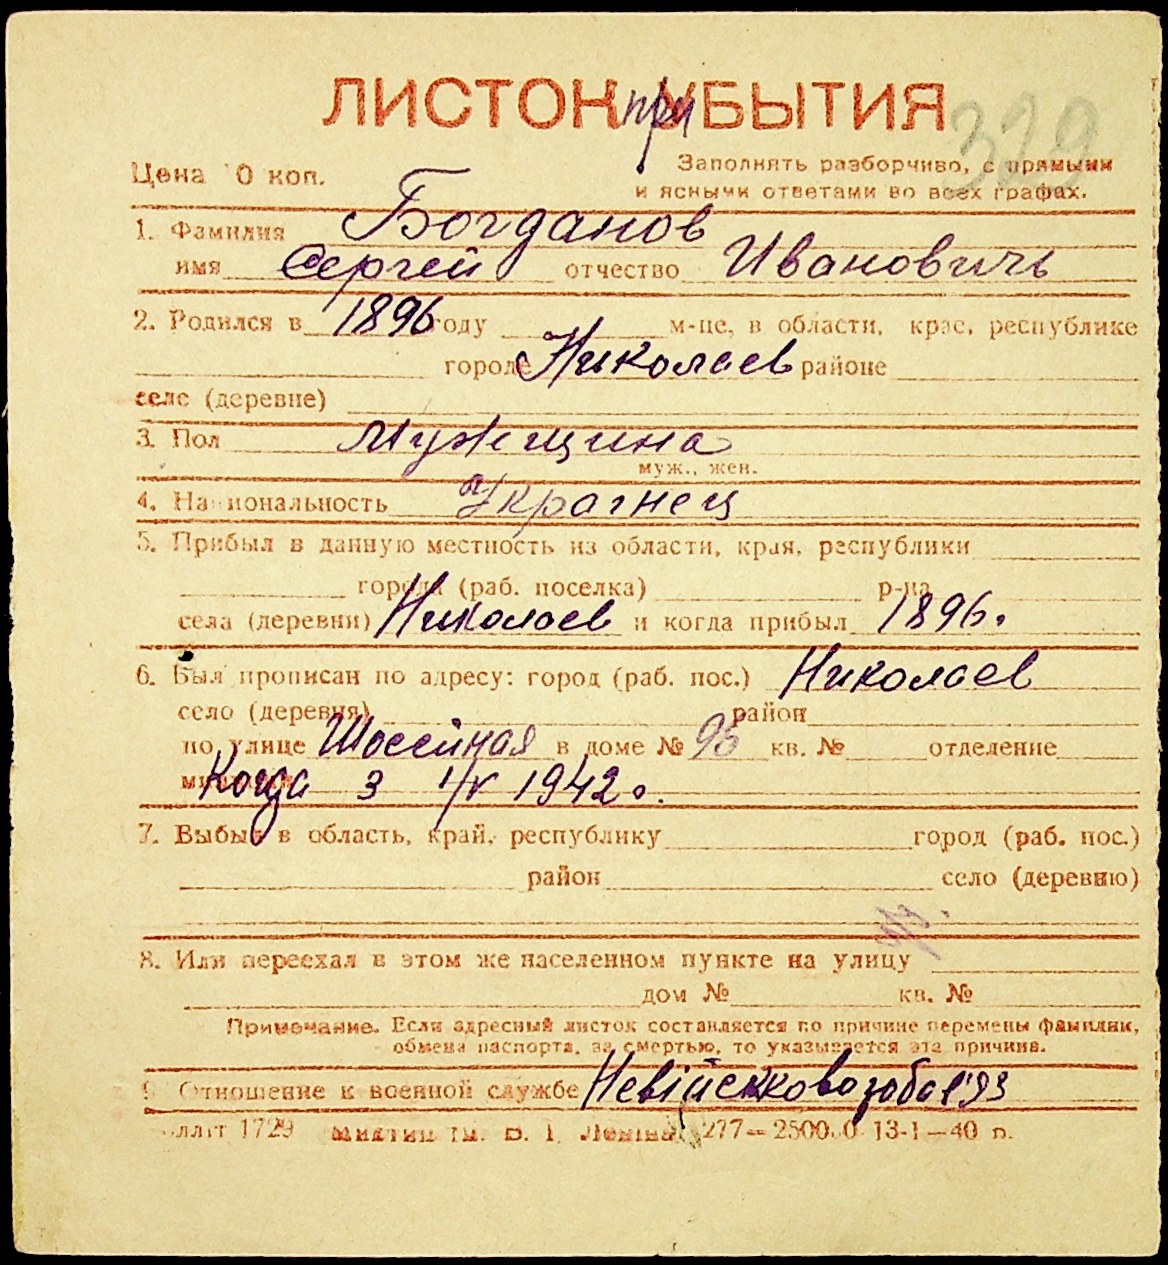 ЛИСТОК при УБЫТИЯ
329
Цена 10 коп.
Заполнять разборчиво, с прямыми
и ясными ответами во всех графах.
1. Фамилия Богданов
имя Сергей отчество Ивановичь
2. Родился в 1896 году м-це, в области, крае, республике
городе Николаев районе
селе (деревне)
3. Пол мужщина
муж., жен.
4. Национальность Украінец
5. Прибыл в данную местность из области, края, республики
города (раб. поселка) р-на
села (деревни) Николаев и когда прибыл 1896.
6. Был прописан по адресу: город (раб. пос.) Николаев
село (деревня) район
по улице Шоссейная в доме № 95 кв. № отделение
милиции Когда з 1/V 1942 г.
7. Выбыл в область, край, республику город (раб. пос.)
район село (деревню)
8. Или переехал в этом же населенном пункте на улицу
дом № кв. №
Примечание. Если адресный листок составляется по причине перемены фамилии,
обмена паспорта, за смертью, то указывается эта причина.
9. Отношение к военной службе Невійсковозобов'яз
1729 277—250000 13-1—40 г.